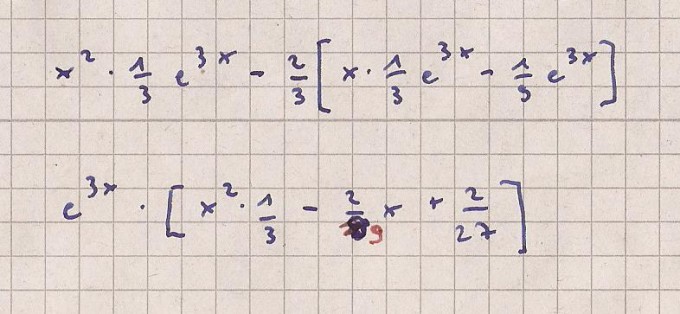 x² · 1/3 e^{3x} - 2/3 [ x · 1/3 e^{3x} - 1/9 e^{3x} ]
e^{3x} · [ x² · 1/3 - 2/9 x + 2/27 ]